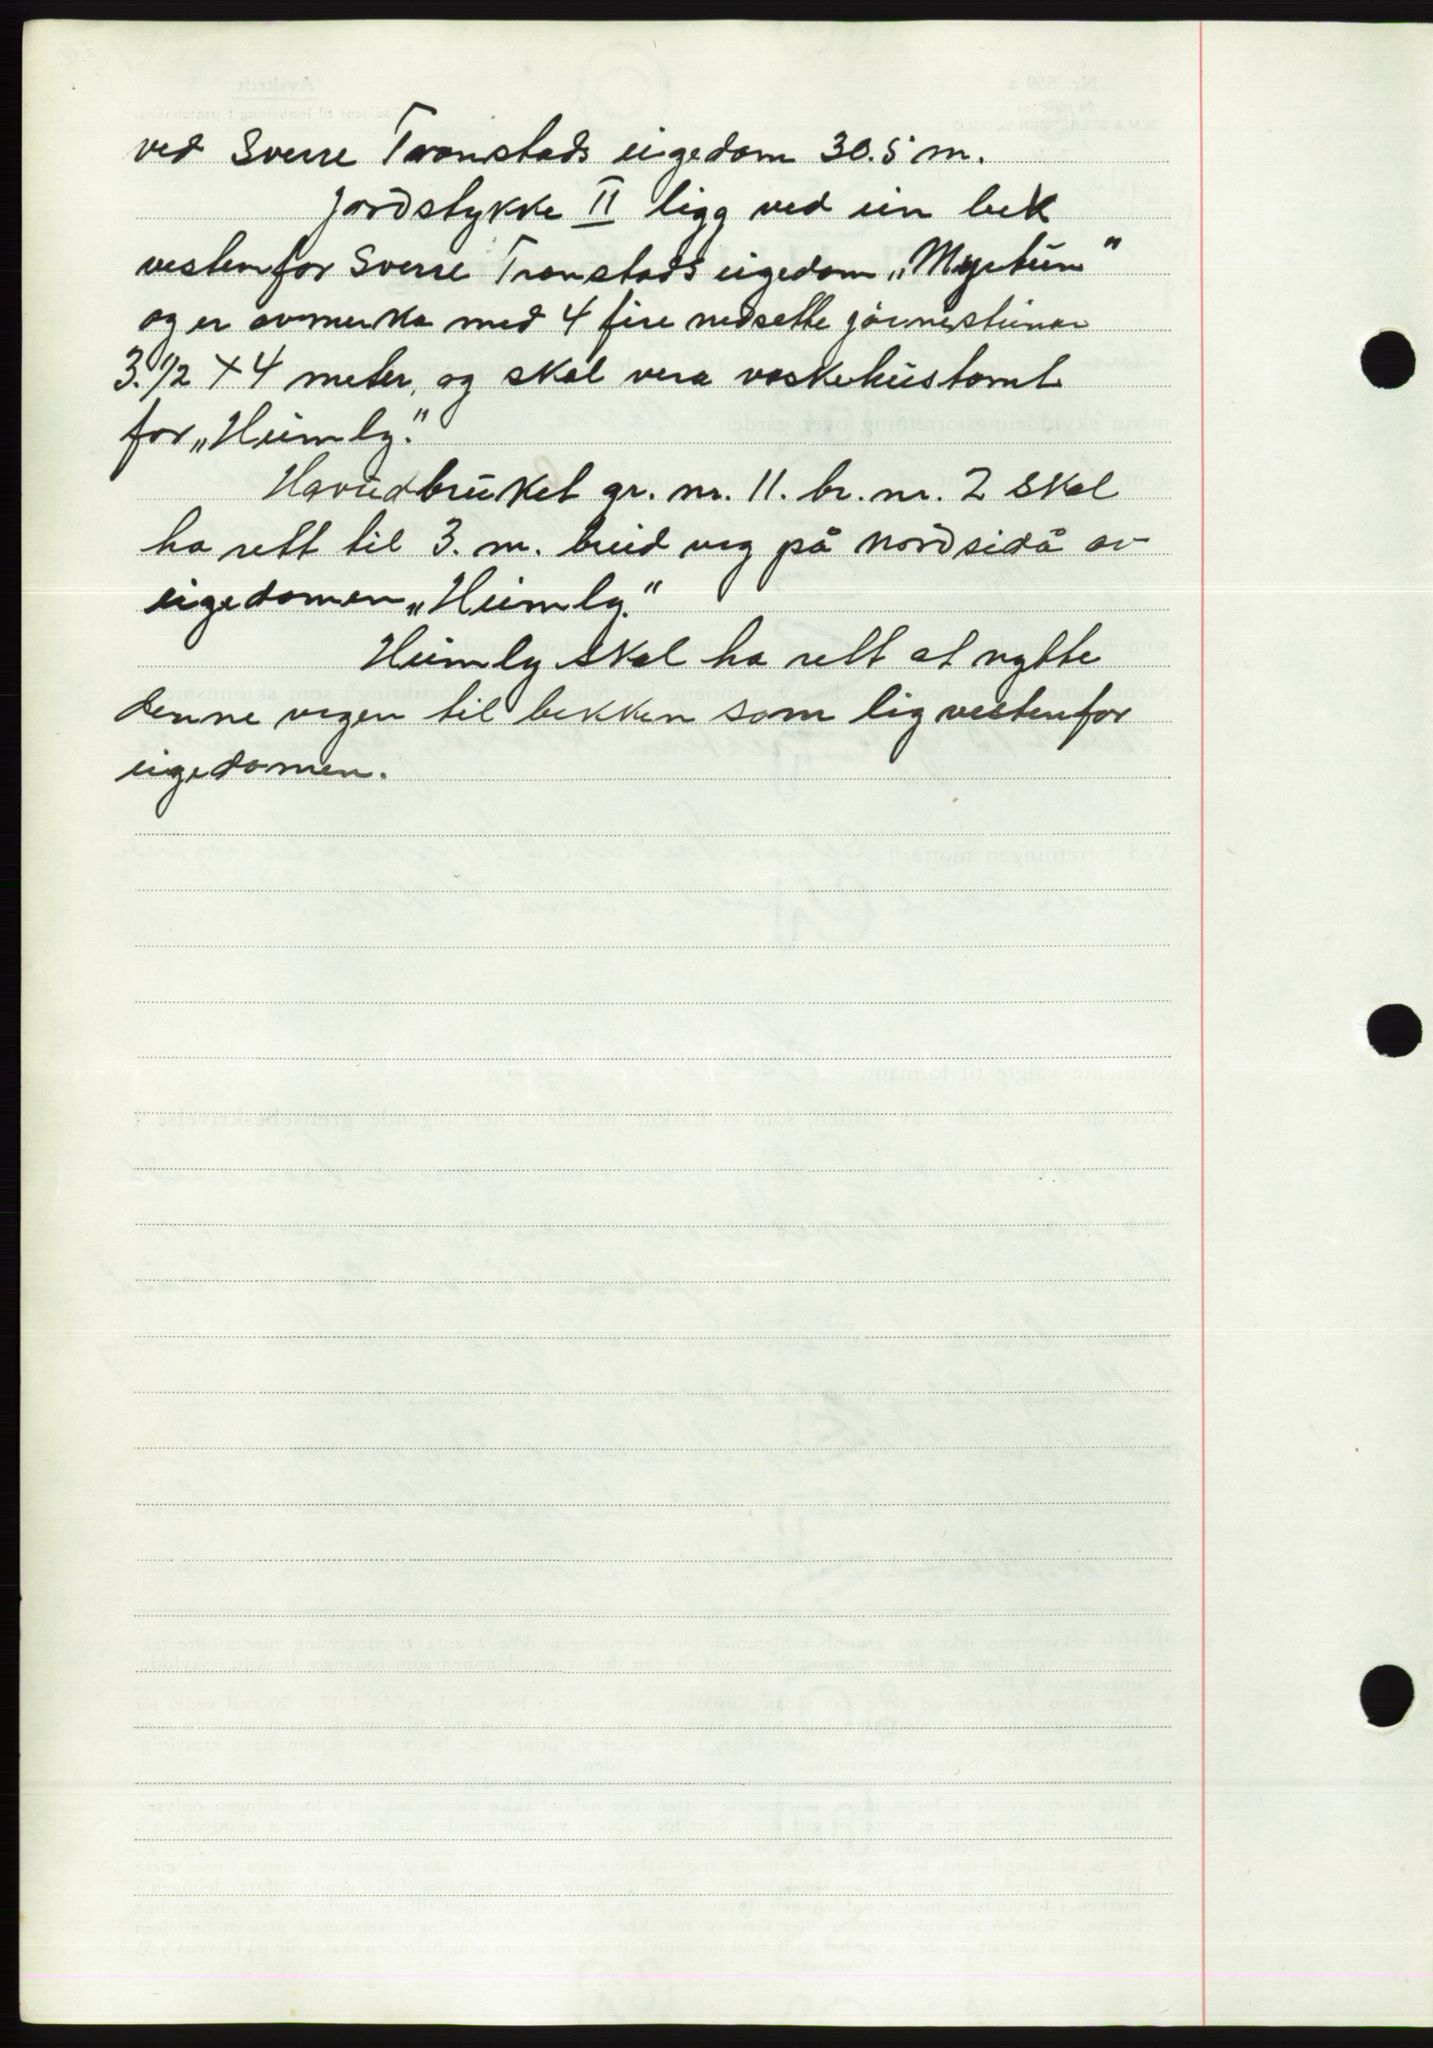 ved Sverre Tronstads eigedom 30.5 m.
Jordstykke II ligg ved ein bekk
vestenfor Sverre Tronstads eigedom „Myrtun"
og er avmerka med 4 fire nedsette jarnesteinar
3.1/2 × 4 meter, og skal vera vaskehustomt
for „Heimly."
Hovudbruket gr. nr. 11. br. nr. 2 skal
ha rett til 3. m. breid veg på nordsida av
eigedomen „Heimly."
Heimly skal ha rett at nytte
denne vegen til bekken som lig vestenfor
eigedomen.